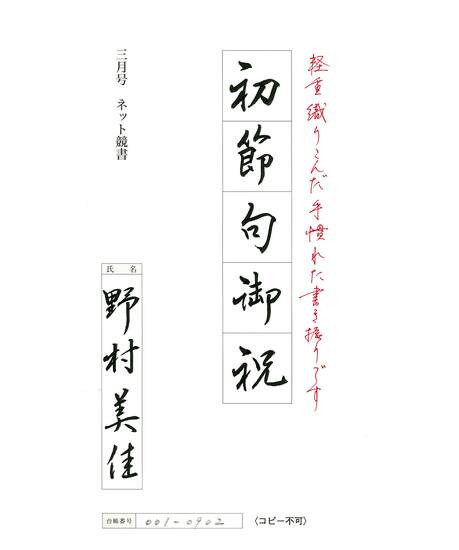 軽重織りこんだ手慣れた書き振りです
初節句御祝
三月号 ネット競書
氏名
野村美佳
台帳番号 001-0902
〈コピー不可〉